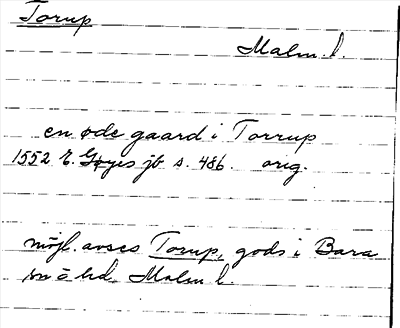 Torup
Malm. l.
en øde gaard i Torrup
1552 E. Gøyes jb s. 486. orig.
möjl. avses Torup, gods i Bara
sn o hd, Malm l.